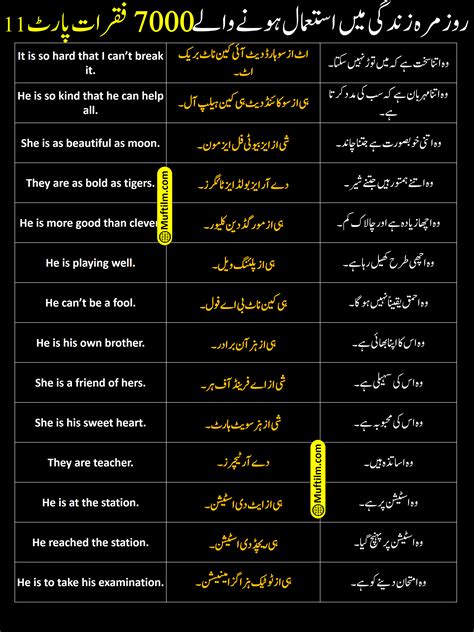 روزمرہ زندگی میں استعمال ہونے والے 7000 فقرات پارٹ 11
It is so hard that I can't break it. اٹ از سو ہارڈ دیٹ آئی کین ناٹ بریک اٹ۔ وہ اتنا سخت ہے کہ میں توڑ نہیں سکتا۔
He is so kind that he can help all. ہی از سو کائنڈ دیٹ ہی کین ہیلپ آل۔ وہ اتنا مہربان ہے کہ سب کی مدد کرتا ہے۔
She is as beautiful as moon. شی از ایز بیوٹی فل ایز مون۔ وہ اتنی خوبصورت ہے جتنا چاند۔
They are as bold as tigers. دے آر ایز بولڈ ایز ٹائگرز۔ وہ اتنے ہمتور ہیں جتنے شیر۔
He is more good than clever ہی از مور گڈ دین کلیور۔ وہ اچھا زیادہ ہے اور چالاک کم۔
Muftilm.com
He is playing well. ہی از پلیئنگ ویل۔ وہ اچھی طرح کھیل رہا ہے۔
He can't be a fool. ہی کین ناٹ بی اے فول۔ وہ احمق یقیناً نہیں ہو گا۔
He is his own brother. ہی از ہز آن برادر۔ وہ اس کا اپنا بھائی ہے۔
She is a friend of hers. شی از اے فرینڈ آف ہر۔ وہ اس کی سہیلی ہے۔
She is his sweet heart. شی از ہز سویٹ ہارٹ۔ وہ اس کی محبوبہ ہے۔
They are teacher. دے آر ٹیچرز۔ وہ اساتذہ ہیں۔
Muftilm.com
He is at the station. ہی از ایٹ دی اسٹیشن۔ وہ اسٹیشن پر ہے۔
He reached the station. ہی ریچڈ دی اسٹیشن۔ وہ اسٹیشن پر پہنچ گیا۔
He is to take his examination. ہی از ٹو ٹیک ہز اگزامینیشن۔ وہ امتحان دینے کو ہے۔